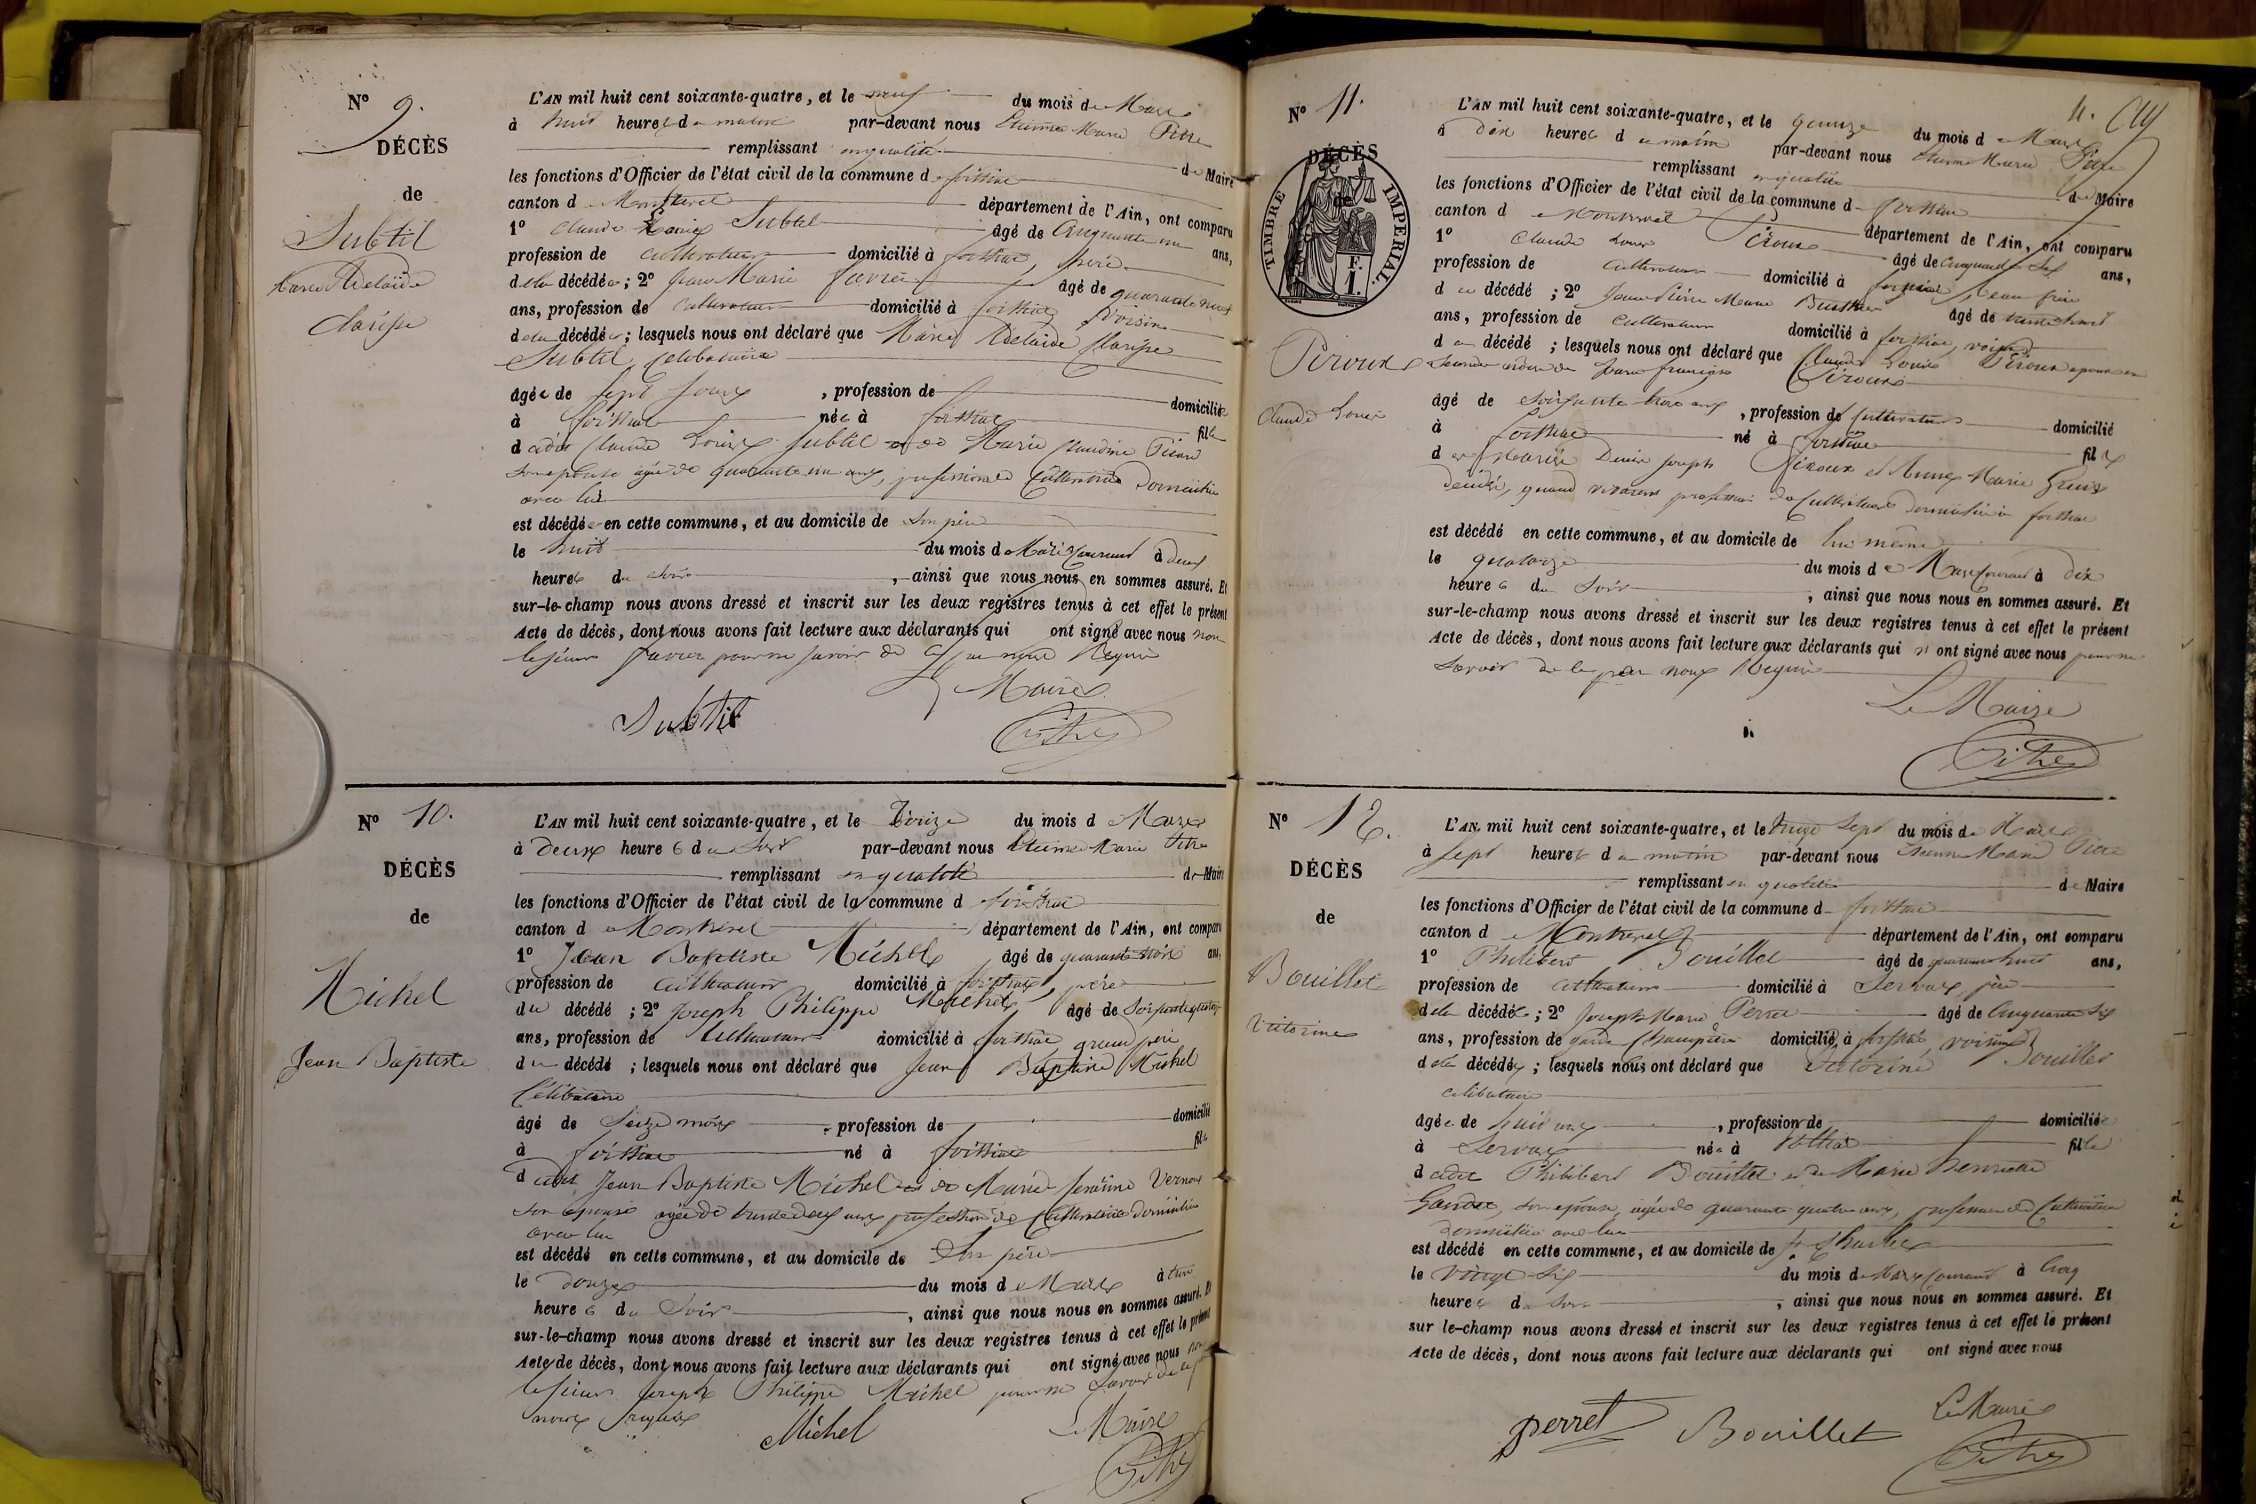 N° 9.
DÉCÈS
de
Subtil
Marie Adelaïde
Clarisse
L'AN mil huit cent soixante-quatre, et le neuf du mois de Mars
à huit heures du matin par-devant nous Etienne Marie Pitre
remplissant en qualité de Maire
les fonctions d'Officier de l'état civil de la commune de foissiat
canton de Montrevel département de l'Ain, ont comparu
1° Claude Louis Subtil âgé de Cinquante un ans,
profession de cultivateur domicilié à foissiat, père
de la décédée; 2° Jean Marie favier âgé de quarante neuf
ans, profession de cultivateur domicilié à foissiat, voisin
de la décédée; lesquels nous ont déclaré que Marie Adelaïde Clarisse
Subtil, célibataire
âgée de sept jours, profession de domiciliée
à foissiat née à foissiat fille
dudit Claude Louis Subtil et de Marie Claudine
son épouse agée de quarante un ans, profession de Cultivatrice domiciliée
avec lui
est décédée en cette commune, et au domicile de son père
le huit du mois de Mars Courant à deux
heures du soir, ainsi que nous nous en sommes assuré. Et
sur-le-champ nous avons dressé et inscrit sur les deux registres tenus à cet effet le présent
Acte de décès, dont nous avons fait lecture aux déclarants qui ont signé avec nous non
le sieur favier pour ne savoir de ce par nous Requis
Le Maire
Subtil
Pitre
N° 10.
DÉCÈS
de
Michel
Jean Baptiste
L'AN mil huit cent soixante-quatre, et le Treize du mois de Mars
à Deux heures du soir par-devant nous Etienne Marie Pitre
remplissant en qualité de Maire
les fonctions d'Officier de l'état civil de la commune d foissiat
canton de Montrevel département de l'Ain, ont comparu
1° Jean Baptiste Michel âgé de quarante trois ans,
profession de cultivateur domicilié à foissiat, père
du décédé; 2° Joseph Philippe Michel âgé de soixante quatorze
ans, profession de Cultivateur domicilié à foissiat grand père
du décédé; lesquels nous ont déclaré que Jean Baptiste Michel
Célibataire
âgé de Seize mois, profession de domicilié
à foissiat né à foissiat fils
dudit Jean Baptiste Michel et de Marie Vernoux
son épouse agée de trente deux ans profession de Cultivatrice domiciliée
avec lui
est décédé en cette commune, et au domicile de Son père
le Douze du mois de Mars à trois
heures du Soir, ainsi que nous nous en sommes assuré. Et
sur-le-champ nous avons dressé et inscrit sur les deux registres tenus à cet effet le présent
Acte de décès, dont nous avons fait lecture aux déclarants qui ont signé avec nous non
le sieur Joseph Philippe Michel pour ne savoir de ce par
nous requis
Michel
Le Maire
Pitre
4.
N° 11.
DÉCÈS
de
TIMBRE IMPÉRIAL.
F.
1.
Piroux
Claude Louis
L'AN mil huit cent soixante-quatre, et le quinze du mois de Mars
à dix heures du matin par-devant nous Etienne Marie Pitre
remplissant en qualité de Maire
les fonctions d'Officier de l'état civil de la commune de foissiat
canton de Montrevel département de l'Ain, ont comparu
1° Claude Louis Piroux âgé de Cinquante six ans,
profession de Cultivateur domicilié à foissiat, beau frère
du décédé; 2° Jean Pierre Marie âgé de trente huit
ans, profession de cultivateur domicilié à foissiat, voisin
du décédé; lesquels nous ont déclaré que Claude Louis Piroux époux en
Jeanne françoise Piroux
âgé de soixante trois ans, profession de Cultivateur domicilié
à foissiat né à foissiat fils
de Denis Joseph Piroux et Anne Marie
décédés, quand vivaient profession de Cultivateurs domiciliés à foissiat
est décédé en cette commune, et au domicile de lui même
le quatorze du mois de Mars Courant à Dix
heures du Soir, ainsi que nous nous en sommes assuré. Et
sur-le-champ nous avons dressé et inscrit sur les deux registres tenus à cet effet le présent
Acte de décès, dont nous avons fait lecture aux déclarants qui n'ont signé avec nous pour ne
savoir de ce par nous Requis
Le Maire
Pitre
N° 12.
DÉCÈS
de
Bouillet
Victorine
L'AN mil huit cent soixante-quatre, et le vingt sept du mois de Mars
à sept heures du matin par-devant nous Etienne Marie Pitre
remplissant en qualité de Maire
les fonctions d'Officier de l'état civil de la commune d foissiat
canton de Montrevel département de l'Ain, ont comparu
1° Philibert Bouillet âgé de quarante huit ans,
profession de cultivateur domicilié à Servas, père
de la décédée; 2° Joseph Marie Perret âgé de Cinquante six
ans, profession de garde Champêtre domicilié à foissiat voisin
de la décédée; lesquels nous ont déclaré que Victorine Bouillet
célibataire
âgée de huit ans, profession de domiciliée
à Servas née à fille
dudit Philibert Bouillet et de Marie Henriette
son épouse, agée de quarante quatre ans, profession de Cultivatrice
domiciliée avec lui
est décédé en cette commune, et au domicile de
le Vingt Six du mois de Mars Courant à Cinq
heures du soir, ainsi que nous nous en sommes assuré. Et
sur le-champ nous avons dressé et inscrit sur les deux registres tenus à cet effet le présent
Acte de décès, dont nous avons fait lecture aux déclarants qui ont signé avec nous
perret
Bouillet
Le Maire
Pitre